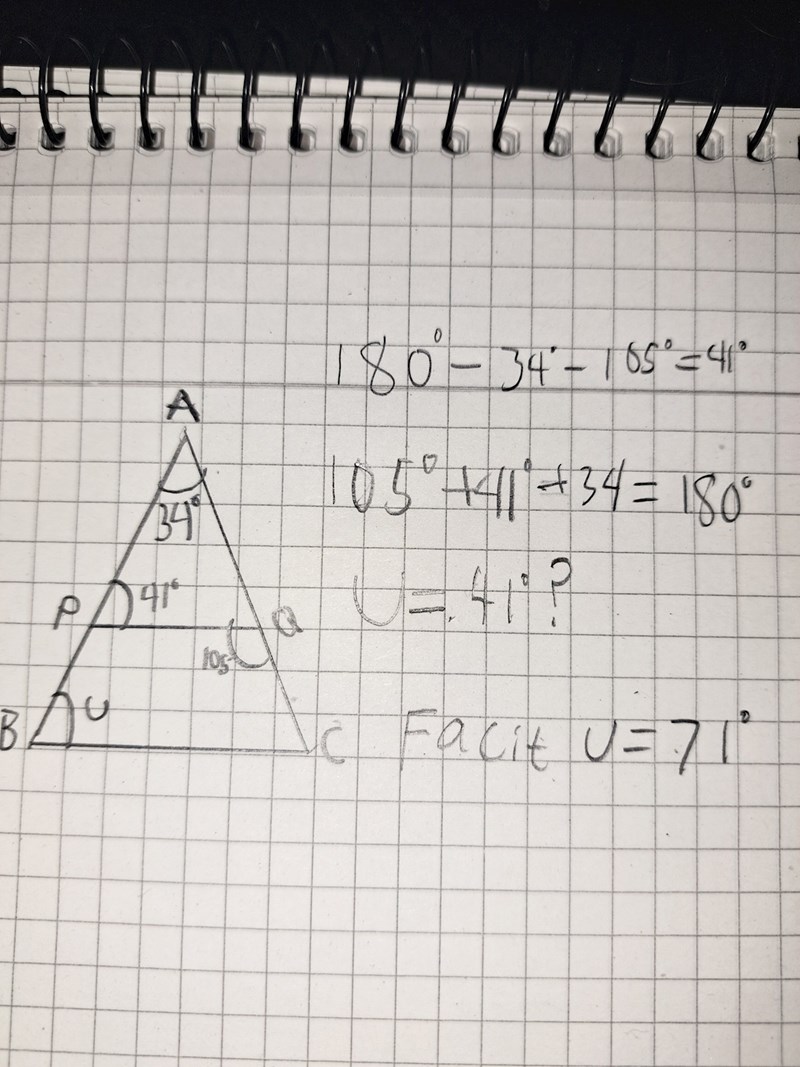 180° - 34° - 105° = 41°
A
105° + 41° + 34 = 180°
34°
P 41° Q
U = 41°?
105
U
B C
Facit U = 71°